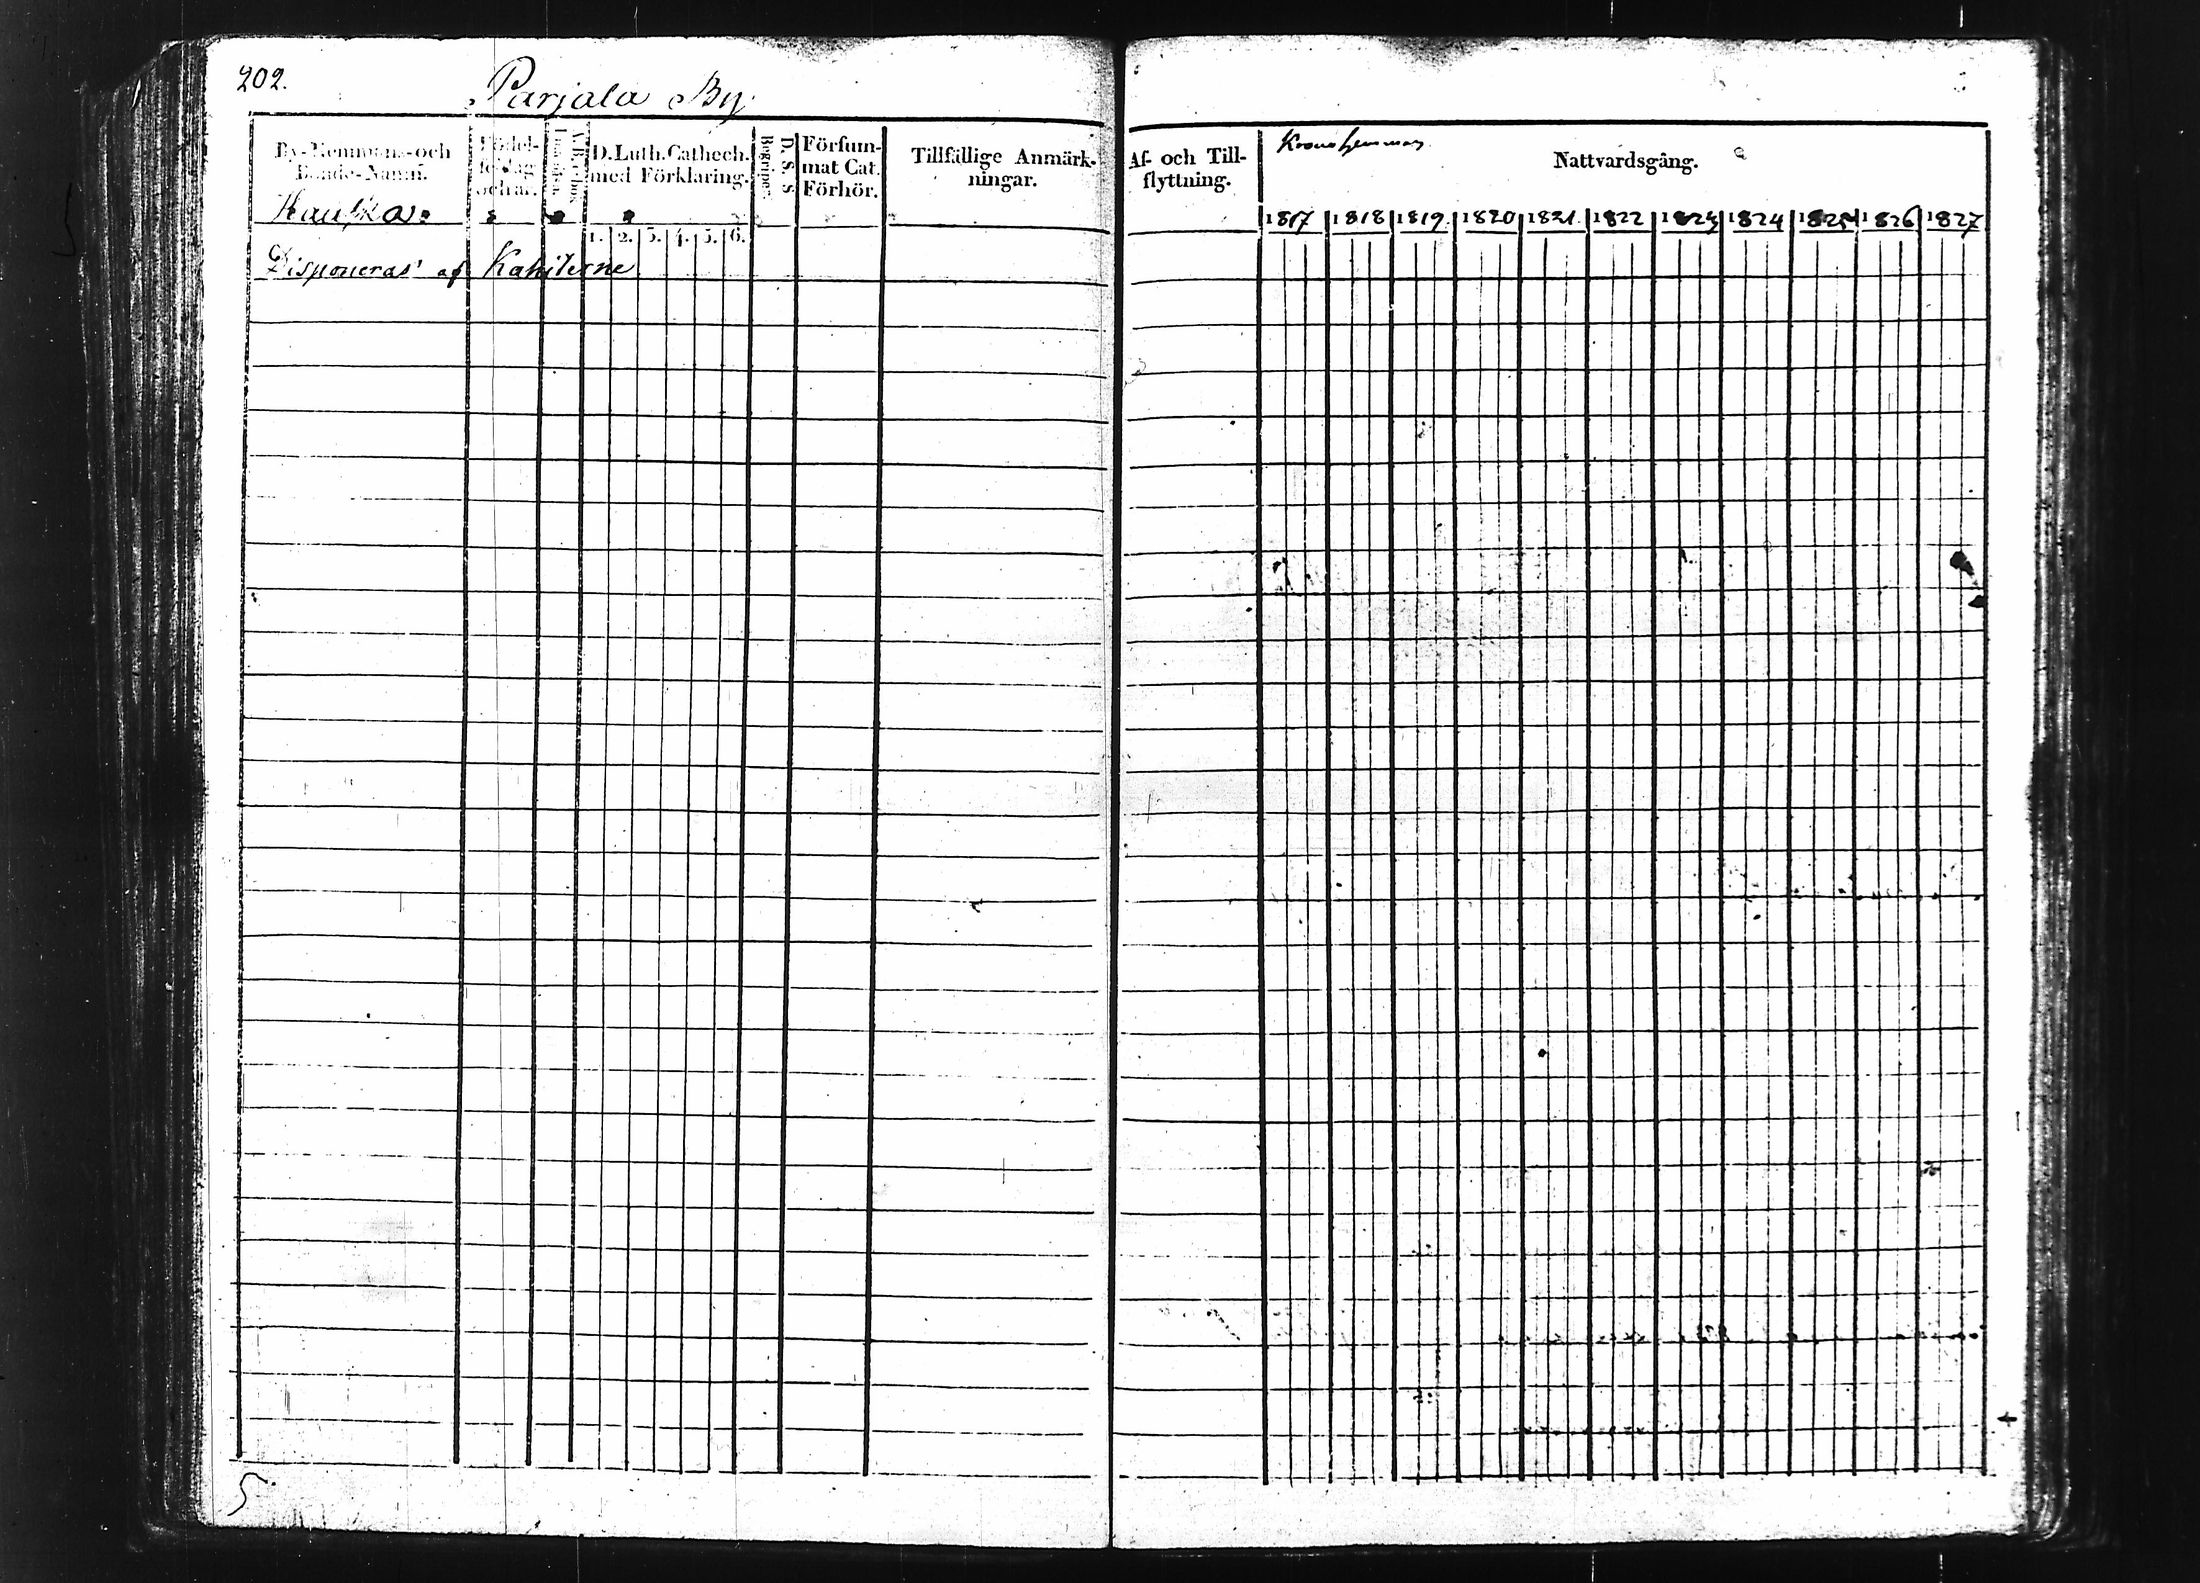 202.
Parjala By.
By-Hemmans-och Bonde-Namn.
Födel-
se-dag
och år.
Begriper
D. S. s
D. Luth. Cathech.
med Förklaring.
Försum-
mat Cat.
Förhör.
Tillfällige Anmärk-
ningar.
1. 2. 3. 4. 5. 6.
Disponeras af Kahilerne
5
Af- och Till-
flyttning.
Kronohemman
Nattvardsgång.
1817 1818 1819. 1820 1821. 1822 1823 1824 1825 1826 1827